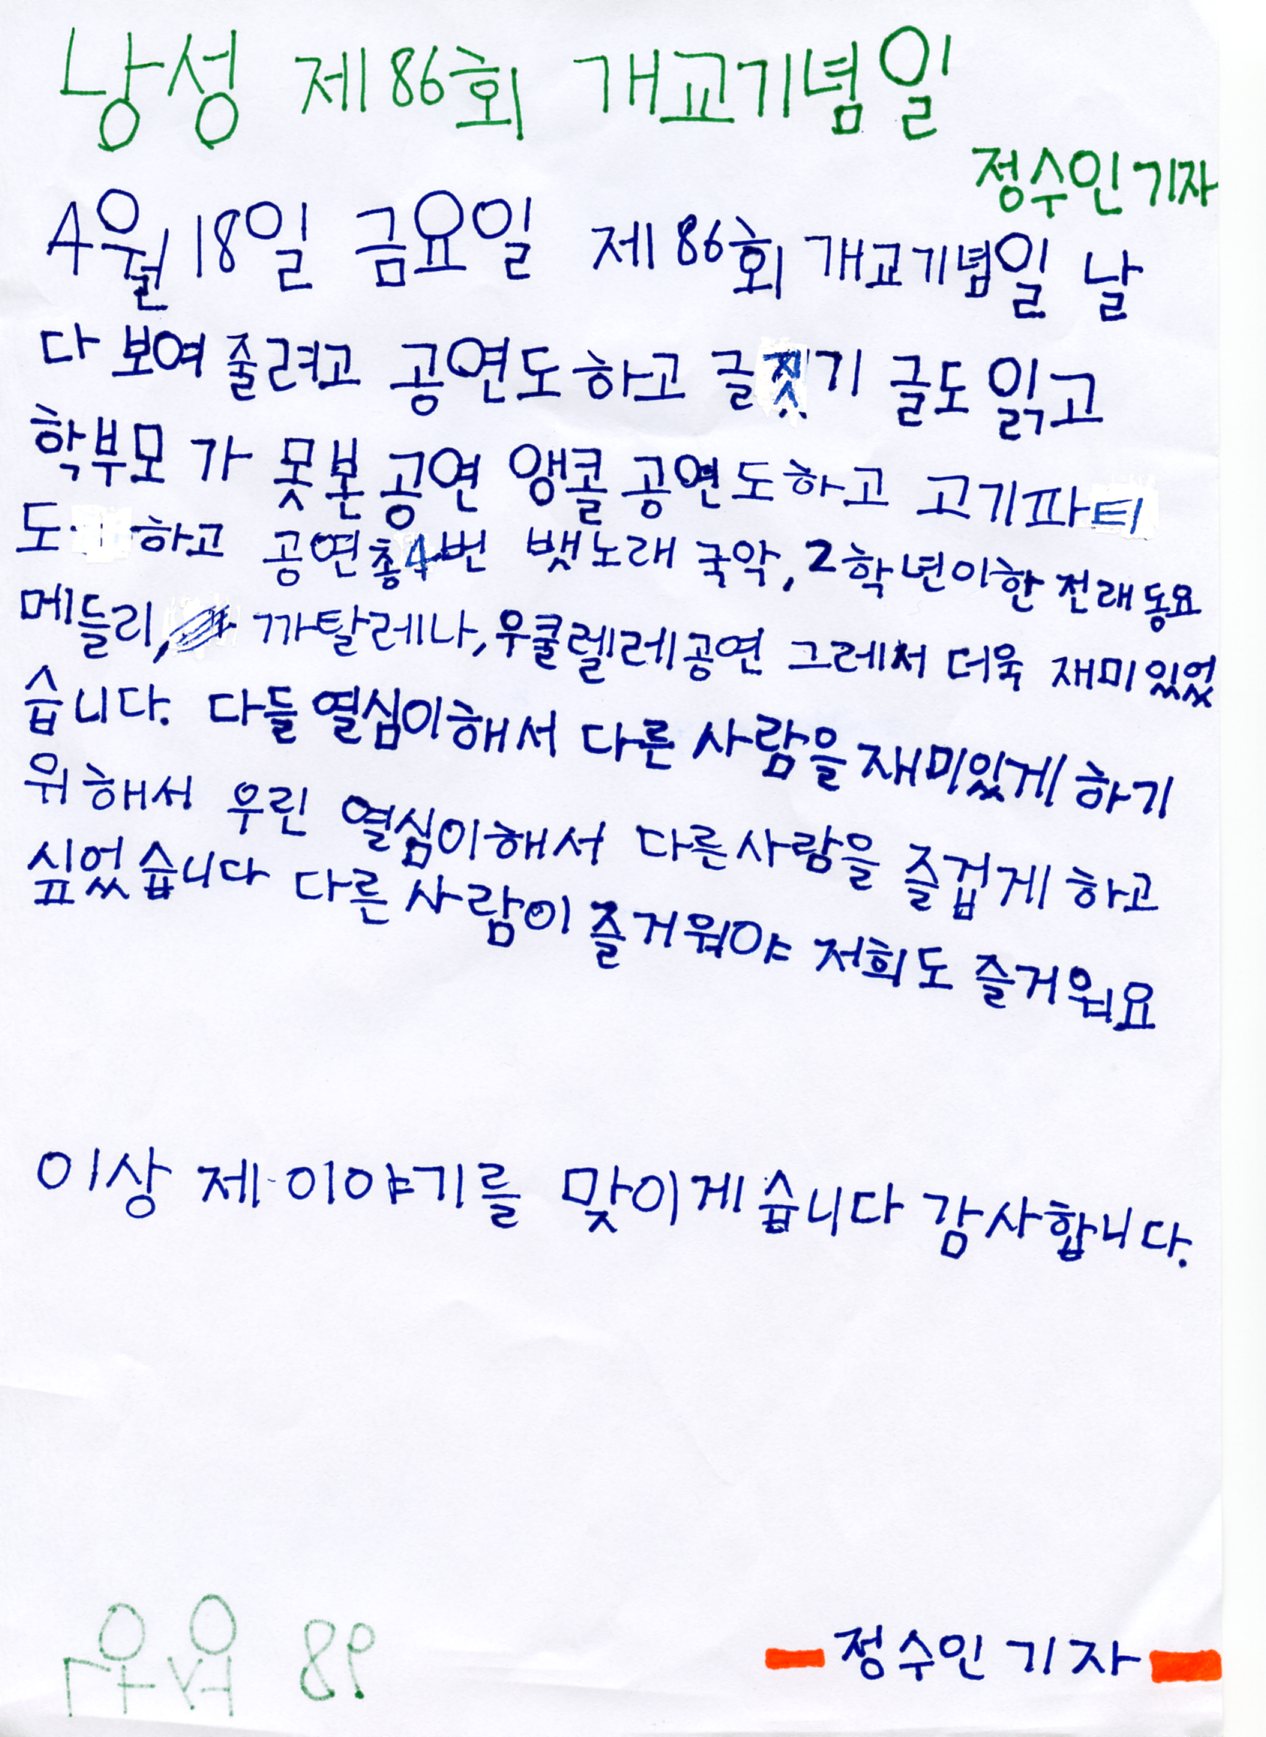 낭성 제86회 개교기념일
정수인 기자
4월 18일 금요일 제86회 개교기념일 날
다 보여 줄려고 공연도하고 글짓기 글도 읽고
학부모 가 못본 공연 앵콜 공연도하고 고기파티
도 하고 공연총4번 뱃노래 국악, 2학년이한 전래동요
메들리, 까탈레나, 우쿨렐레공연 그레서 더욱 재미있었
습니다. 다들 열심이해서 다른 사람을 재미있게 하기
위해서 우린 열심이해서 다른사람을 즐겁게 하고
싶었습니다 다른 사람이 즐거워야 저희도 즐거워요
이상 제 이야기를 맞이게습니다 감사합니다.
정수인 기자